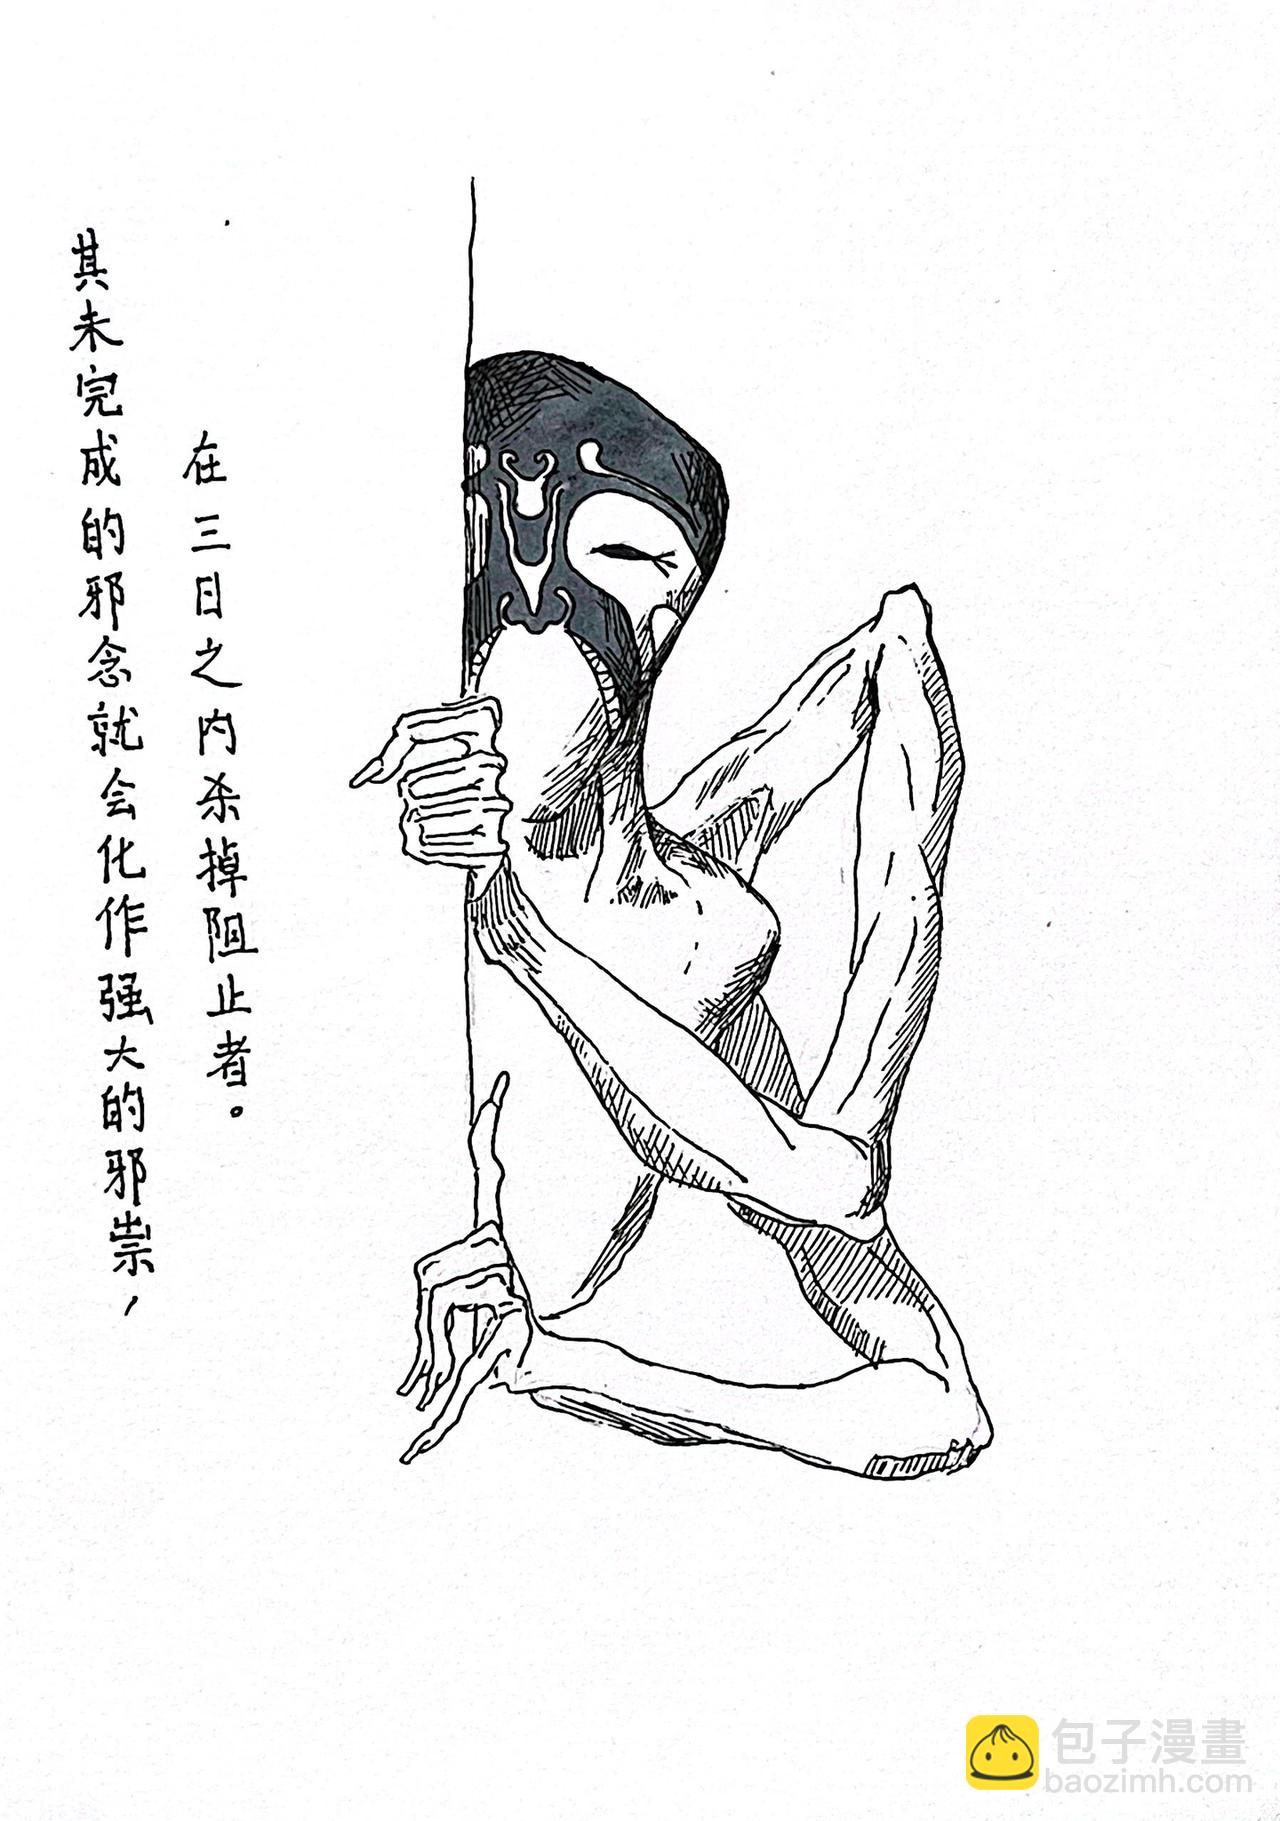 其未完成的邪念就会化作强大的邪祟，
在三日之内杀掉阻止者。
包子漫畫
baozimh.com